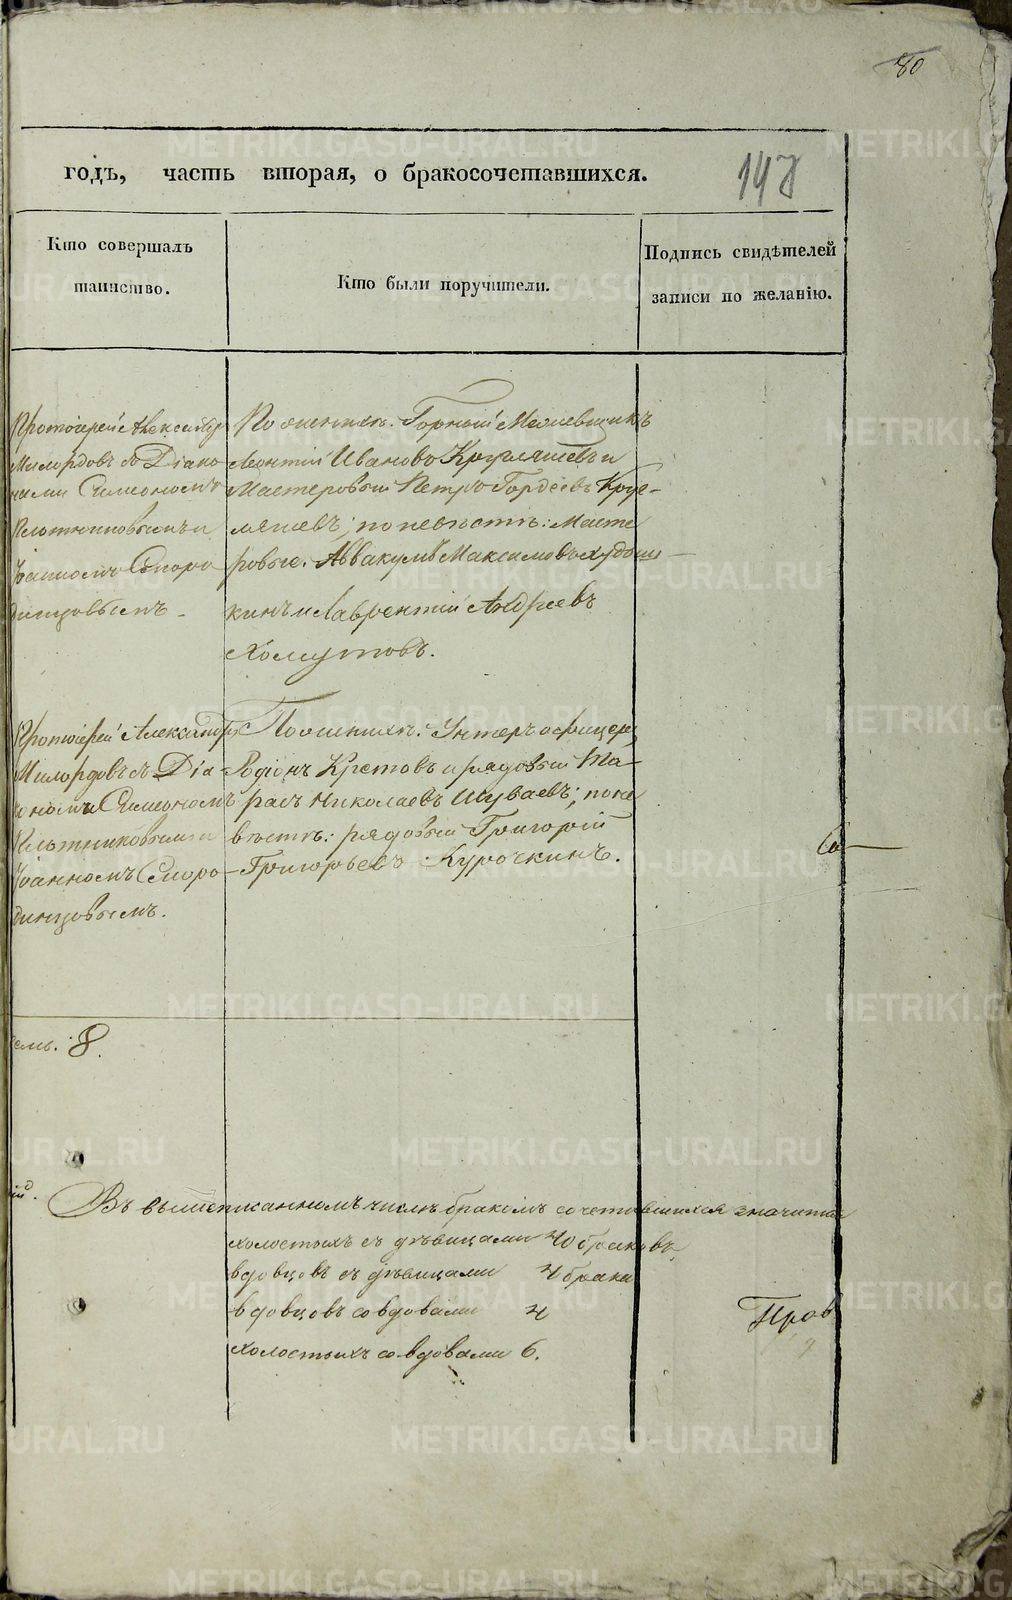 80
годъ, часть вторая, о бракосочетавшихся.
147
Кто совершалъ
таинство.
Кто были поручители.
Подпись свидѣтелей
записи по желанію.
Протоіерей Александръ
Милордовъ съ Діако
нами Симеономъ
Плотниковымъ и
Іоанномъ Сморо
динцовымъ
По женихѣ: Горный
Леонтій Ивановъ и
Мастеровый Петръ Гордѣевъ
по невѣстѣ: Масте
ровые: Аввакумъ Максимовъ Худош
кинъ и Лаврентій Андреевъ
Хомутовъ.
Протоіерей Александръ
Милордовъ съ Діа
кономъ Симеономъ
Плотниковымъ и
Іоанномъ Сморо
динцовымъ.
По женихѣ: Унтеръ офицеръ
Родіонъ Кретовъ и рядовый Та
расъ Николаевъ Шуваевъ; по не
вѣстѣ: рядовый Григорій
Григорьевъ Курочкинъ.
Со
8.
Въ вышеписанномъ числѣ бракомъ сочетавшихся значится
холостыхъ съ дѣвицами 40 браковъ
вдовцовъ съ дѣвицами 4 брака
вдовцовъ со вдовами 4
холостыхъ со вдовами 6.
Прот
METRIKI.GASO-URAL.RU